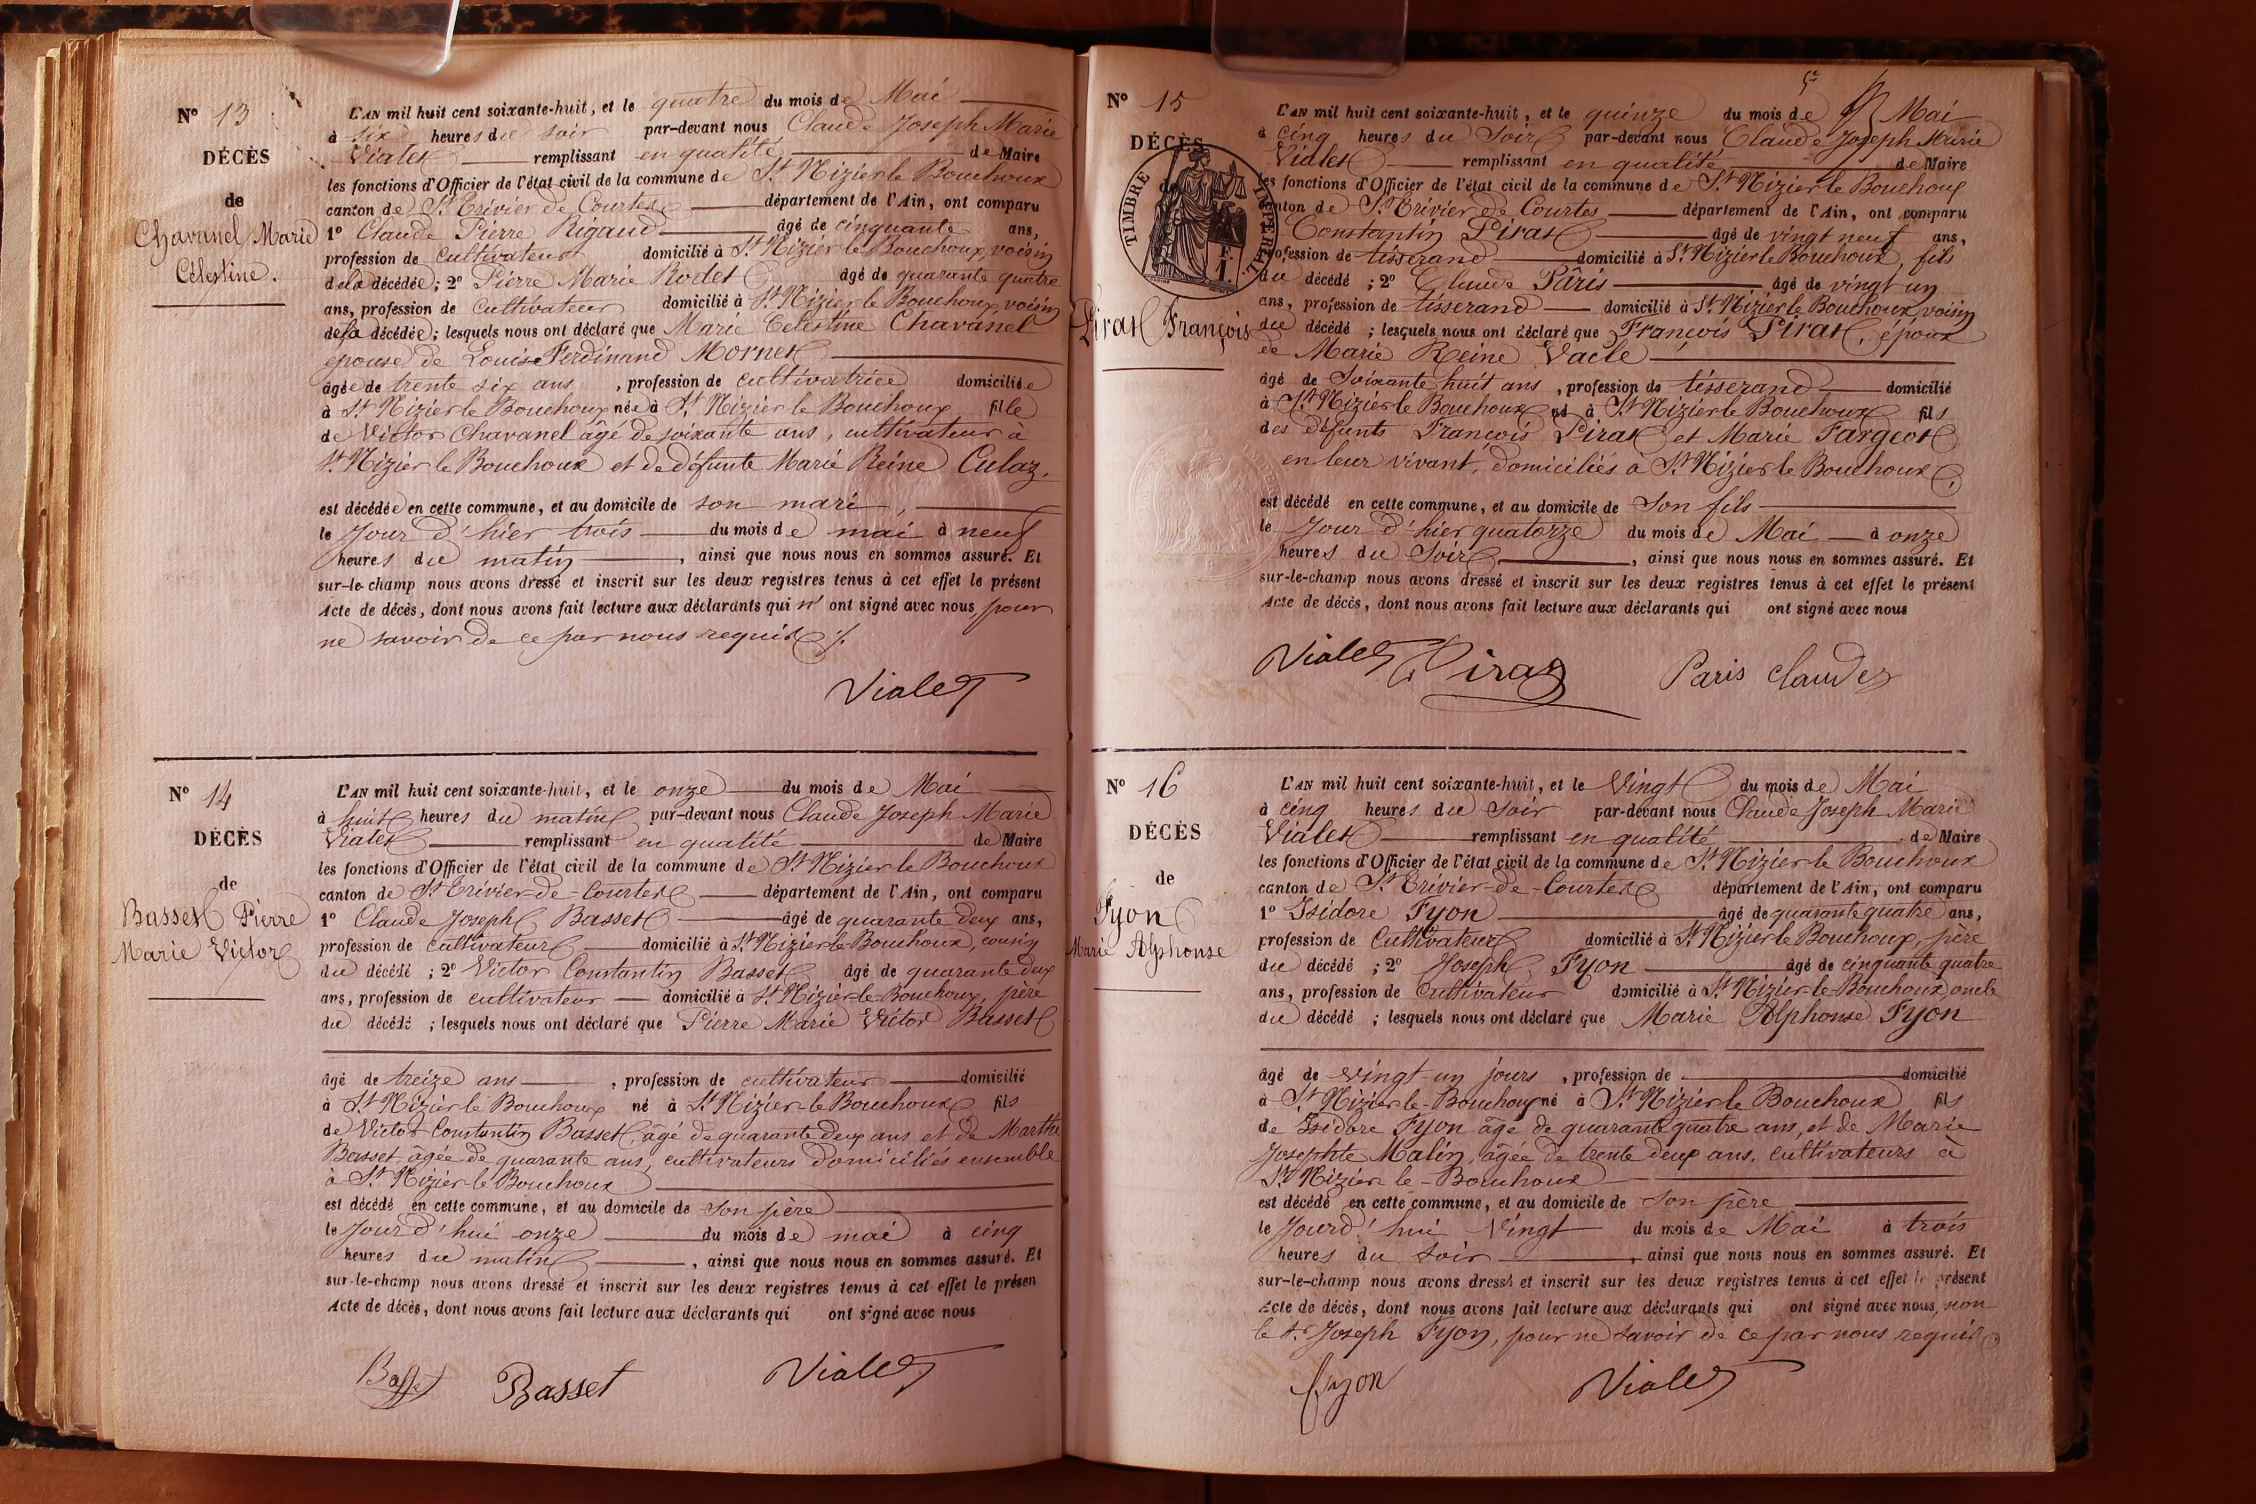 N° 13
DÉCÈS
de
Chavanel Marie
Célestine.
L'AN mil huit cent soixante-huit, et le quatre du mois de Mai
à six heures du soir par-devant nous Claude Joseph Marie
Vialet remplissant en qualité de Maire
les fonctions d'Officier de l'état civil de la commune de St Nizier le Bouchoux
canton de St Trivier de Courtes département de l'Ain, ont comparu
1° Claude Pierre Rigaud âgé de cinquante ans,
profession de cultivateur domicilié à St Nizier le Bouchoux, voisin
de la décédée; 2° Pierre Marie Rodet âgé de quarante quatre
ans, profession de cultivateur domicilié à St Nizier le Bouchoux, voisin
de la décédée; lesquels nous ont déclaré que Marie Celestine Chavanel
épouse de Louis Ferdinand Mornet
âgée de trente six ans, profession de cultivatrice domiciliée
à St Nizier le Bouchoux née à St Nizier le Bouchoux fille
de Victor Chavanel âgé de soixante ans, cultivateur à
St Nizier le Bouchoux et de défunte Marie Reine Culaz,
est décédée en cette commune, et au domicile de son mari,
le jour d'hier trois du mois de mai à neuf
heures du matin, ainsi que nous nous en sommes assuré. Et
sur-le-champ nous avons dressé et inscrit sur les deux registres tenus à cet effet le présent
Acte de décès, dont nous avons fait lecture aux déclarants qui n'ont signé avec nous, pour
ne savoir de ce par nous requis ./.
Vialet
N° 14
DÉCÈS
de
Basset Pierre
Marie Victor
L'AN mil huit cent soixante-huit, et le onze du mois de Mai
à huit heures du matin par-devant nous Claude Joseph Marie
Vialet remplissant en qualité de Maire
les fonctions d'Officier de l'état civil de la commune de St Nizier le Bouchoux
canton de St Trivier-de-Courtes département de l'Ain, ont comparu
1° Claude Joseph Basset âgé de quarante deux ans,
profession de cultivateur domicilié à St Nizier le Bouchoux, cousin
du décédé ; 2° Victor Constantin Basset âgé de quarante deux
ans, profession de cultivateur domicilié à St Nizier-le-Bouchoux, père
du décédé ; lesquels nous ont déclaré que Pierre Marie Victor Basset
âgé de treize ans, profession de cultivateur domicilié
à St Nizier le Bouchoux né à St Nizier-le Bouchoux fils
de Victor Constantin Basset, âgé de quarante deux ans et de Marthe
Basset âgée de quarante ans, cultivateurs domiciliés ensemble
à St Nizier-le Bouchoux
est décédé en cette commune, et au domicile de son père
le jour d'hui onze du mois de mai à cinq
heures du matin, ainsi que nous nous en sommes assuré. Et
sur-le-champ nous avons dressé et inscrit sur les deux registres tenus à cet effet le présen
Acte de décès, dont nous avons fait lecture aux déclarants qui ont signé avec nous
Basset Basset Vialet
N° 15
DÉCÈS
de
TIMBRE IMPÉRIAL
1 F.
Pirat François
L'AN mil huit cent soixante-huit, et le quinze du mois de Mai
à cinq heures du Soir par-devant nous Claude Joseph Marie
Vialet remplissant en qualité de Maire
les fonctions d'Officier de l'état civil de la commune de St Nizier le Bouchoux
canton de St Trivier de Courtes département de l'Ain, ont comparu
Constantin Pirat âgé de vingt neuf ans,
profession de tisserand domicilié à St Nizier le Bouchoux, fils
du décédé ; 2° Claude Pâris âgé de vingt un
ans, profession de tisserand domicilié à St Nizier le Bouchoux, voisin
du décédé ; lesquels nous ont déclaré que François Pirat, époux
de Marie Reine Vacle
âgé de Soixante huit ans, profession de tisserand domicilié
à St Nizier le Bouchoux né à St Nizier le Bouchoux fils
des défunts François Pirat et Marie Fargeot
en leur vivant, domiciliés à St Nizier le Bouchoux,
est décédé en cette commune, et au domicile de Son fils
le jour d'hier quatorze du mois de Mai à onze
heures du Soir, ainsi que nous nous en sommes assuré. Et
sur-le-champ nous avons dressé et inscrit sur les deux registres tenus à cet effet le présent
Acte de décès, dont nous avons fait lecture aux déclarants qui ont signé avec nous
Vialet Pirat Paris claude
N° 16
DÉCÈS
de
Fyon
Marie Alphonse
L'AN mil huit cent soixante-huit, et le Vingt du mois de Mai
à cinq heures du Soir par-devant nous Claude Joseph Marie
Vialet remplissant en qualité de Maire
les fonctions d'Officier de l'état civil de la commune de St Nizier le Bouchoux
canton de St Trivier-de-Courtes département de l'Ain, ont comparu
1° Isidore Fyon âgé de quarante quatre ans,
profession de Cultivateur domicilié à St Nizier le Bouchoux, père
du décédé ; 2° Joseph Fyon âgé de cinquante quatre
ans, profession de Cultivateur domicilié à St Nizier-le-Bouchoux, oncle
du décédé ; lesquels nous ont déclaré que Marie Alphonse Fyon
âgé de vingt un jours, profession de domicilié
à St Nizier-le-Bouchoux né à St Nizier le Bouchoux fils
de Isidore Fyon âgé de quarante quatre ans, et de Marie
Josephte Malin, âgée de trente deux ans, cultivateurs à
St Nizier-le-Bouchoux
est décédé en cette commune, et au domicile de son père
le Jourd'hui Vingt du mois de Mai à trois
heures du soir, ainsi que nous nous en sommes assuré. Et
sur-le-champ nous avons dressé et inscrit sur les deux registres tenus à cet effet le présent
Acte de décès, dont nous avons fait lecture aux déclarants qui ont signé avec nous, non
le sr Joseph Fyon, pour ne savoir de ce par nous requis
fyon Vialet